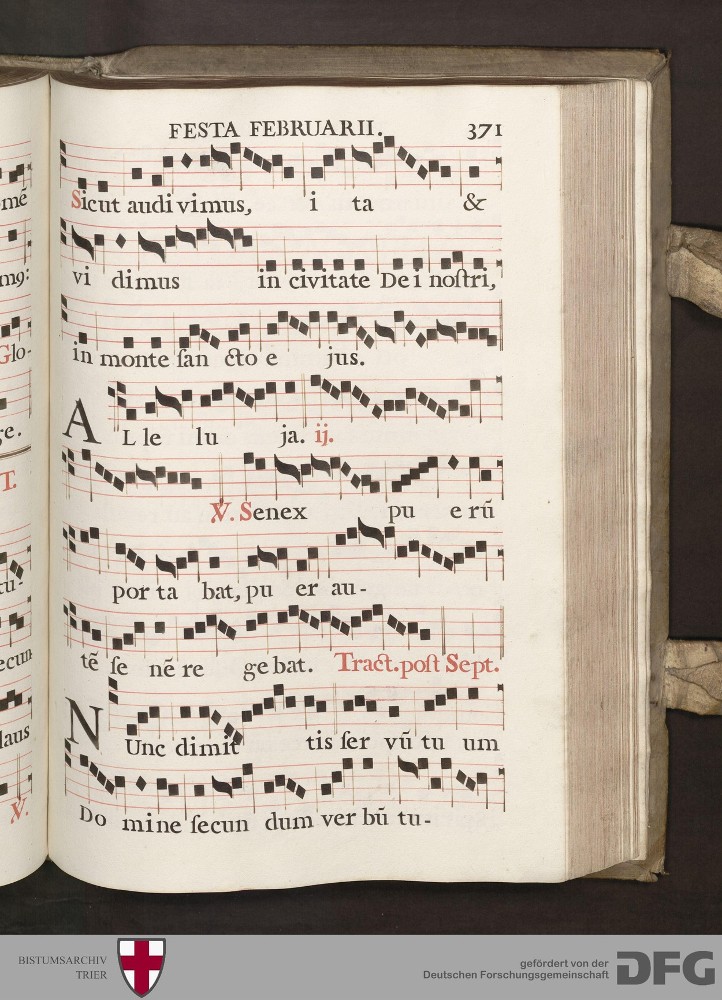 FESTA FEBRUARII. 371
Sicut audi vimus, i ta &
vi dimus in civitate De i noſtri,
in monte ſan cto e jus.
A L le lu ja. ij.
℣. Senex pu e rū
por ta bat, pu er au-
tē ſe nē re ge bat. Tract. poſt Sept.
N Unc dimit tis ſer vū tu um
Do mine ſecun dum ver bū tu-
mē
m9:
Glo-
re.
T.
tu-
ecun
laus
℣.
BISTUMSARCHIV
TRIER
gefördert von der
Deutschen Forschungsgemeinschaft
DFG